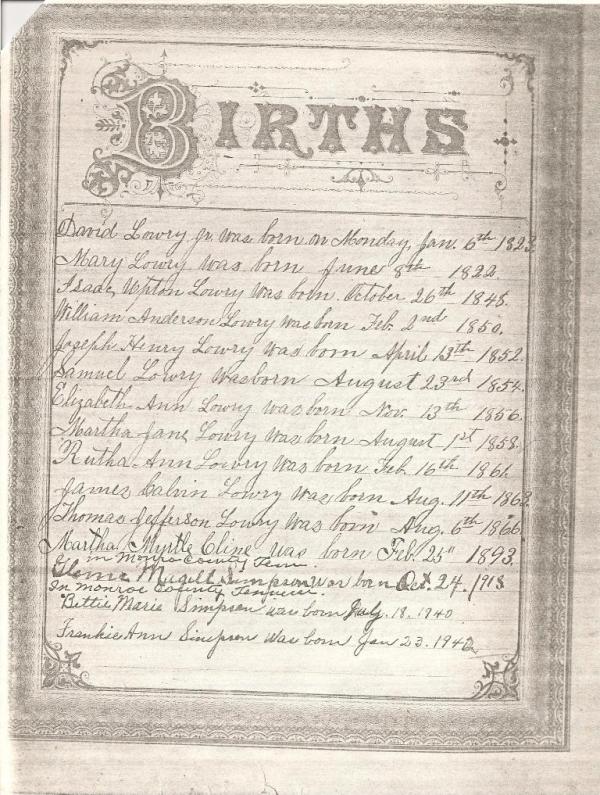 BIRTHS
David Lowry Jr. was born on Monday, Jan. 6th 1823
Mary Lowry was born June 8th 1822
Isaac Upton Lowry was born October 26th 1848.
William Anderson Lowry was born Feb. 2nd 1850.
Joseph Henry Lowry was born April 13th 1852.
Samuel Lowry was born August 23rd 1854.
Elizabeth Ann Lowry was born Nov. 13th 1856.
Martha Jane Lowry was born August 1st 1858.
Rutha Ann Lowry was born Feb. 16th 1861
James Calvin Lowry was born Aug. 11th 1863.
Thomas Jefferson Lowry was born Aug. 6th 1866.
Martha Myrtle Cline was born Feb. 25" 1893.
in Monroe County Tenn.
Simpson was born Oct. 24. 1918
In Monroe County
Bettie Marie Simpson was born July. 18. 1940
Frankie Ann Simpson was born Jan 23. 1942